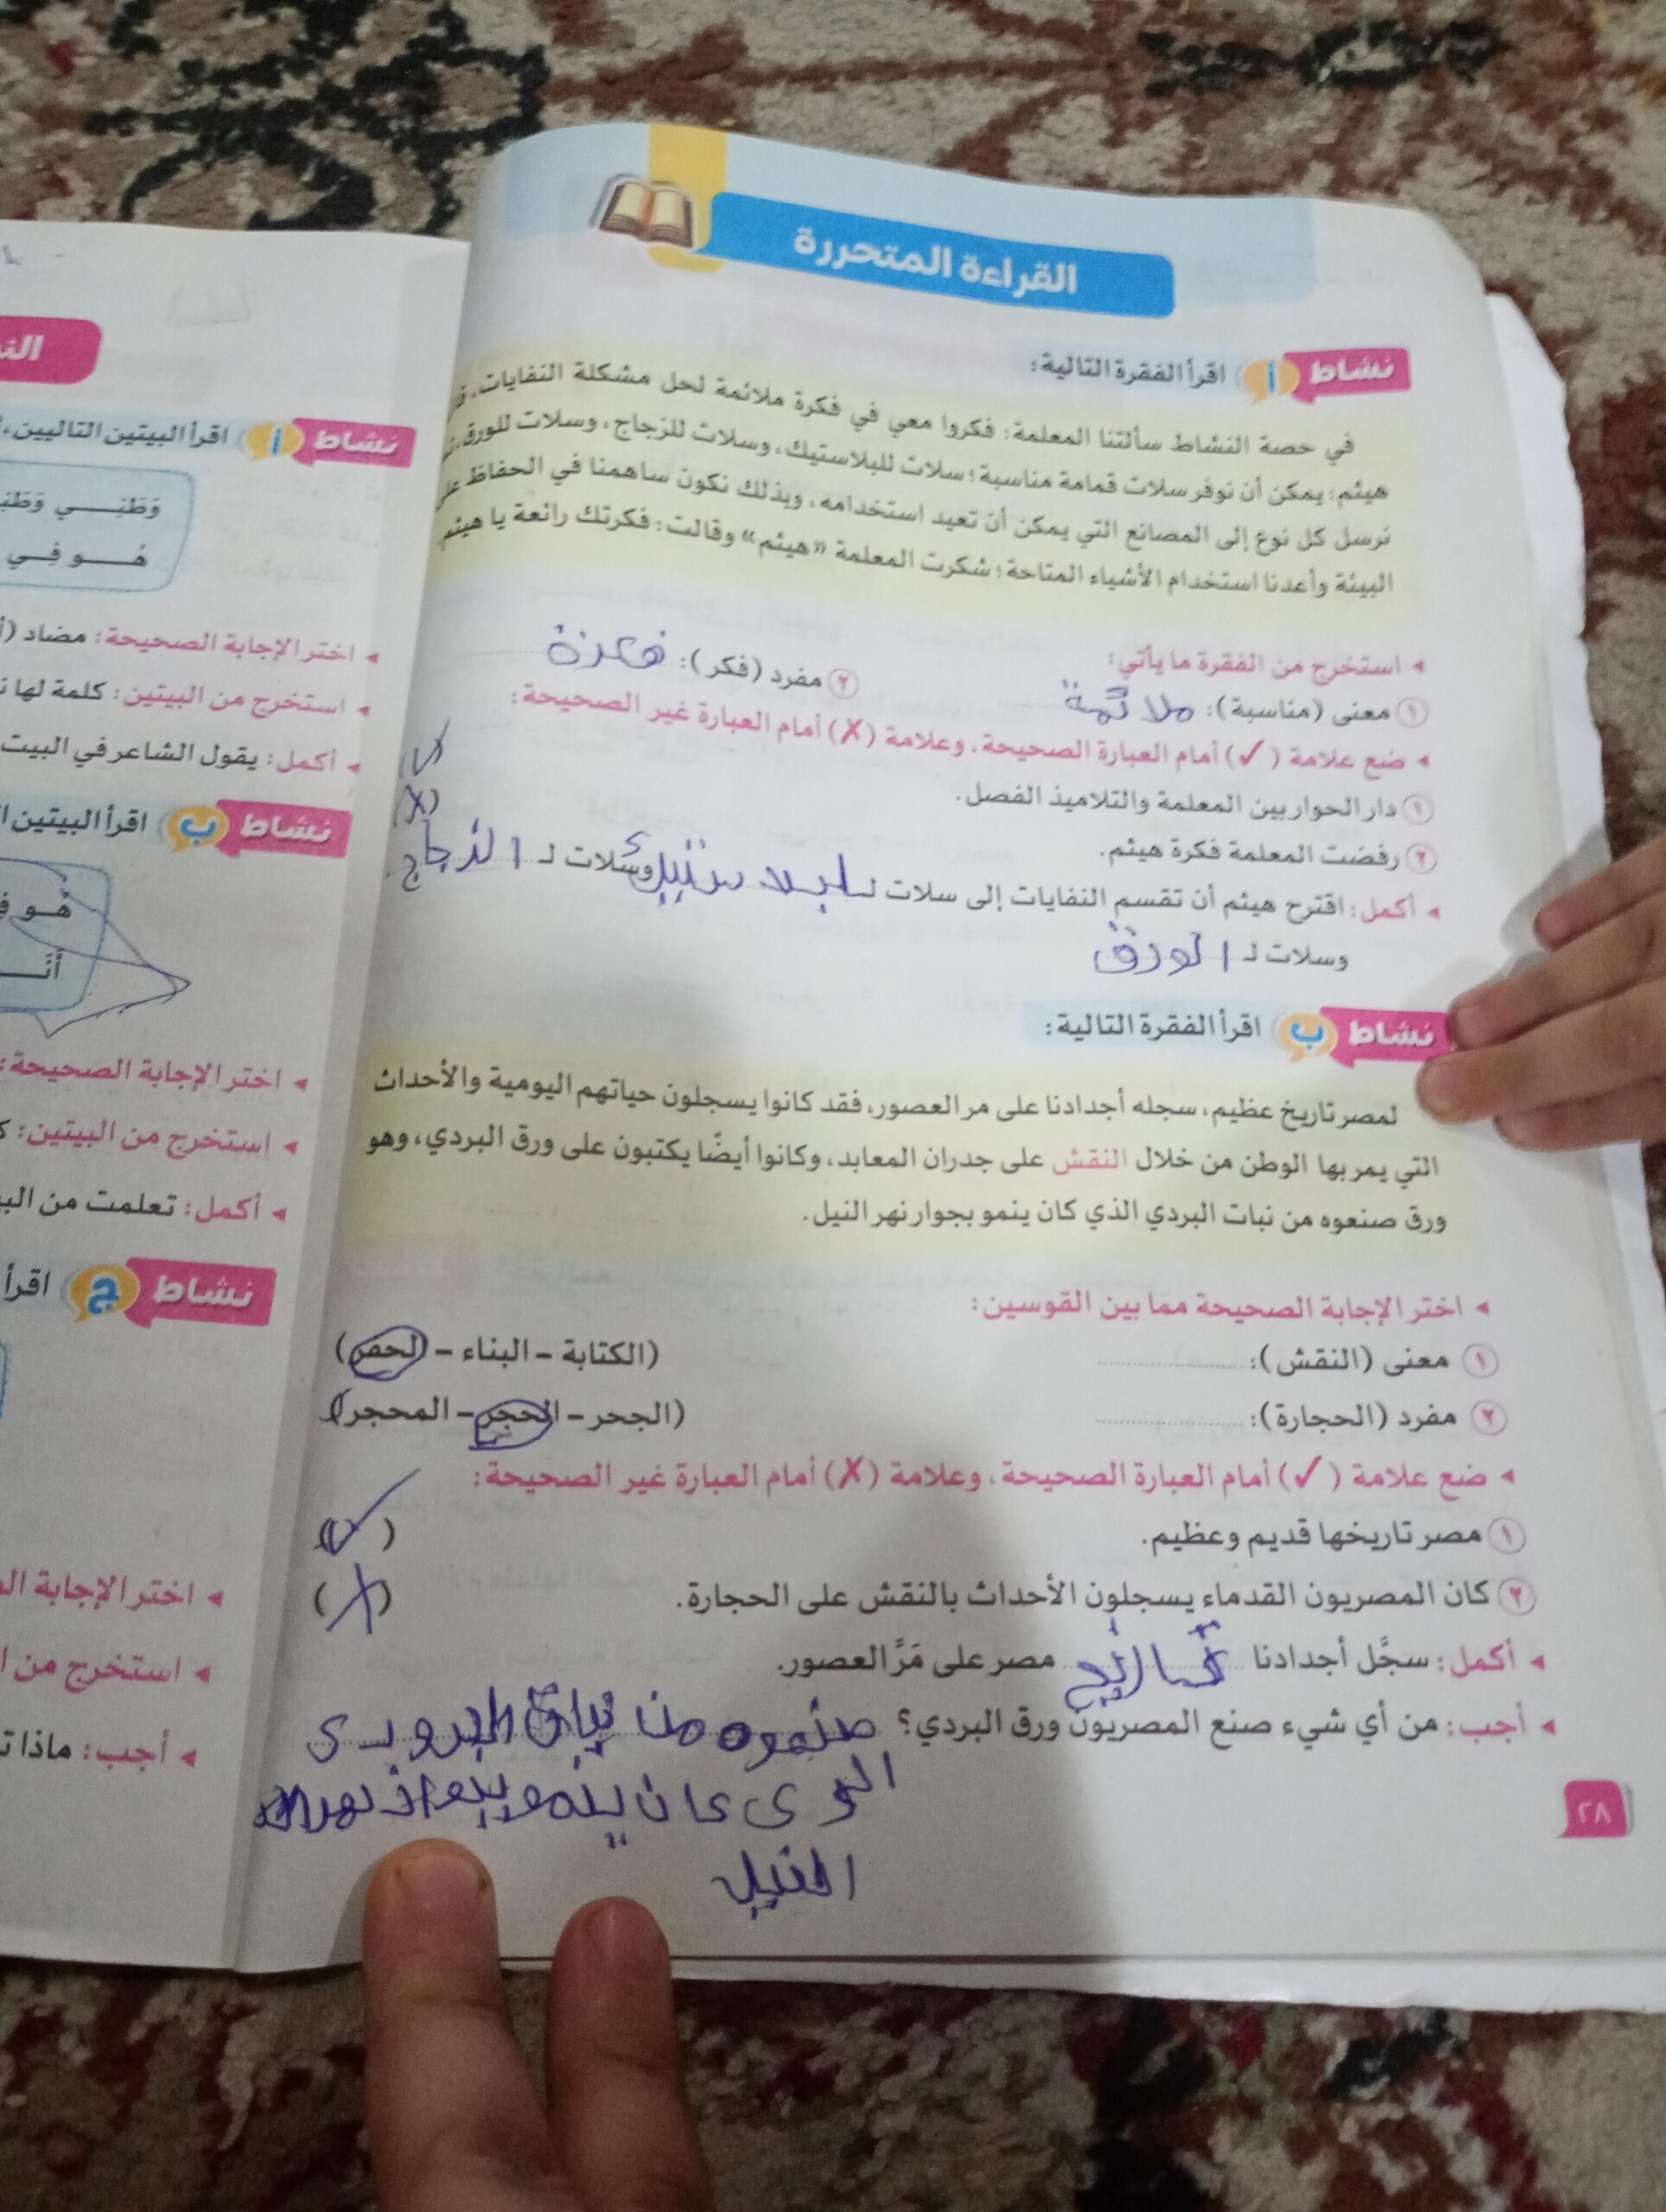 القراءة المتحررة
نشاط أ اقرأ الفقرة التالية:
في حصة النشاط سألتنا المعلمة: فكروا معي في فكرة ملائمة لحل مشكلة النفايات،
هيثم: يمكن أن نوفر سلات قمامة مناسبة؛ سلات للبلاستيك، وسلات للزجاج، وسلات للورق،
نرسل كل نوع إلى المصانع التي يمكن أن تعيد استخدامه، وبذلك نكون ساهمنا في الحفاظ
البيئة وأعدنا استخدام الأشياء المتاحة؛ شكرت المعلمة «هيثم» وقالت: فكرتك رائعة يا هيثم.
◂ استخرج من الفقرة ما يأتي:
١ معنى (مناسبة): ملائمة ٢ مفرد (فكر): فكرة
◂ ضع علامة (✓) أمام العبارة الصحيحة، وعلامة (✗) أمام العبارة غير الصحيحة:
١ دار الحوار بين المعلمة والتلاميذ الفصل. (✓)
٢ رفضت المعلمة فكرة هيثم. (✗)
◂ أكمل: اقترح هيثم أن تقسم النفايات إلى سلات لـ وسلات لـ الزجاج
وسلات لـ الورق
نشاط ب اقرأ الفقرة التالية:
لمصر تاريخ عظيم، سجله أجدادنا على مر العصور، فقد كانوا يسجلون حياتهم اليومية والأحداث
التي يمر بها الوطن من خلال النقش على جدران المعابد، وكانوا أيضًا يكتبون على ورق البردي، وهو
ورق صنعوه من نبات البردي الذي كان ينمو بجوار نهر النيل.
◂ اختر الإجابة الصحيحة مما بين القوسين:
١ معنى (النقش): .................... (الكتابة – البناء – الحفر)
٢ مفرد (الحجارة): .................... (الجحر – الحجر – المحجر)
◂ ضع علامة (✓) أمام العبارة الصحيحة، وعلامة (✗) أمام العبارة غير الصحيحة:
١ مصر تاريخها قديم وعظيم. (✓)
٢ كان المصريون القدماء يسجلون الأحداث بالنقش على الحجارة. (✗)
◂ أكمل: سجَّل أجدادنا مصر على مَرِّ العصور.
◂ أجب: من أي شيء صنع المصريون ورق البردي؟ صنعوه من نبات
كان ينمو
النيل
٢٨
نشاط أ اقرأ البيتين التاليين،
وَطَنِــــي
هُــــو فِــي
◂ اختر الإجابة الصحيحة: مضاد
◂ استخرج من البيتين: كلمة لها
◂ أكمل: يقول الشاعر في البيت
نشاط ب اقرأ البيتين
هُــو
◂ اختر الإجابة الصحيحة:
◂ استخرج من البيتين:
◂ أكمل: تعلمت من
نشاط ج اقرأ
◂ اختر الإجابة
◂ استخرج من
◂ أجب: ماذا